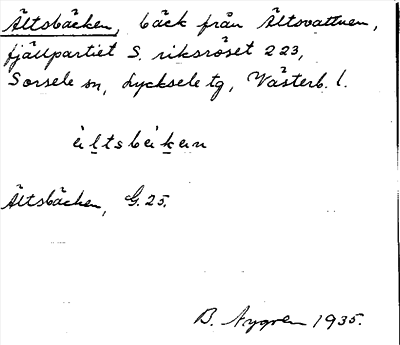 Ältsbäcken, bäck från Ältsvattnen,
fjällpartiet S. riksröset 223,
Sorsele sn, Lycksele tg, Västerb. l.
Ältsbäcken, G. 25.
B. Nygren 1935.